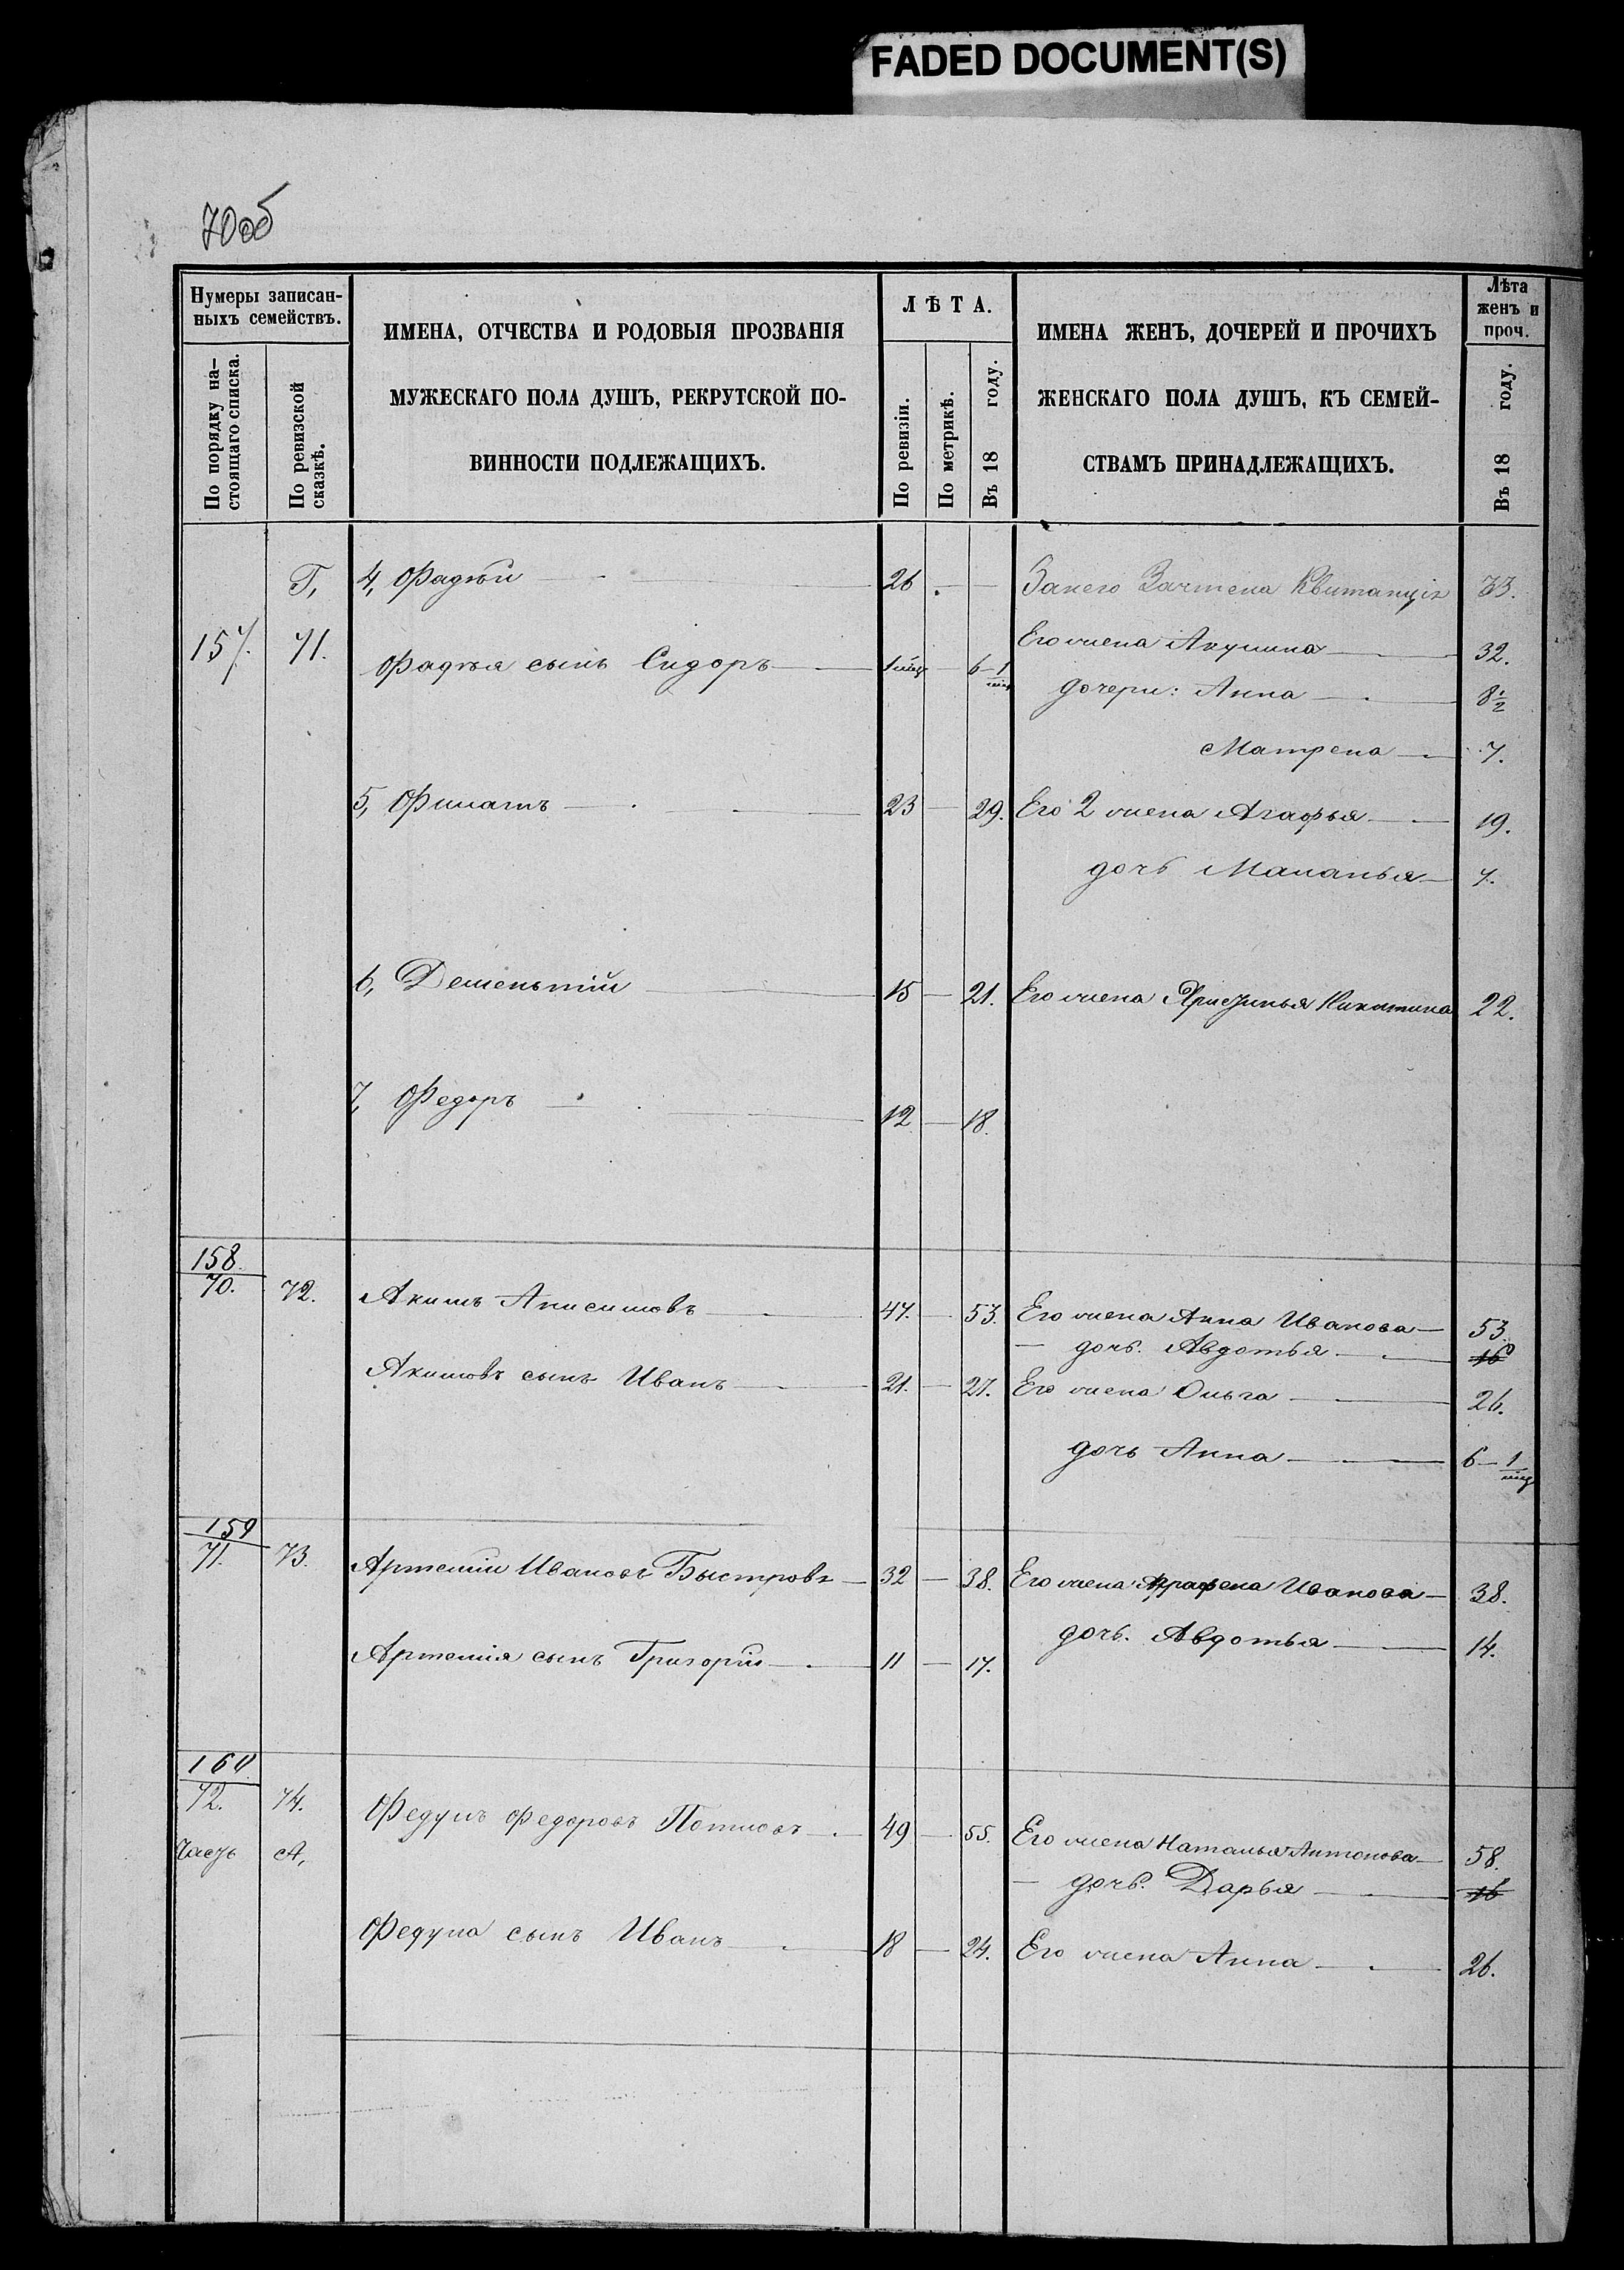 FADED DOCUMENT(S)
70об
Нумеры записан-
ныхъ семействъ.
По порядку на-
стоящаго списка.
По ревизской
сказкѣ.
ИМЕНА, ОТЧЕСТВА И РОДОВЫЯ ПРОЗВАНІЯ
МУЖЕСКАГО ПОЛА ДУШЪ, РЕКРУТСКОЙ ПО-
ВИННОСТИ ПОДЛЕЖАЩИХЪ.
ЛѢТА.
По ревизіи.
По метрикѣ.
Въ 18 году.
ИМЕНА ЖЕНЪ, ДОЧЕРЕЙ И ПРОЧИХЪ
ЖЕНСКАГО ПОЛА ДУШЪ, КЪ СЕМЕЙ-
СТВАМЪ ПРИНАДЛЕЖАЩИХЪ.
Лѣта
женъ и
проч.
Въ 18 году.
Г, 4, Фадѣй — 26 — — За него Зачтена Квитанція 33.
157. 71. Его жена Акулина — 32.
Фадѣя сынъ Сидоръ — 1 мѣц — 6 — 1 мѣц
дочери: Анна — 8 1/2
Матрена — 7.
5, Филатъ — 23 — 29. Его 2 жена Агафья — 19.
дочь Маланья — 7.
6, Деменьтій — 15 — 21. Его жена Никитина 22.
7, Федоръ — 12 — 18.
158.
70. 72. Акимъ Анисимовъ — 47. — 53. Его жена Анна Иванова — 53.
— дочь. Авдотья — 16
Акимовъ сынъ Иванъ — 21. — 27. Его жена Ольга — 26.
дочь Анна — 6 — 1 мѣц
159
71. 73. Артемій Ивановъ Быстровъ — 32 — 38. Его жена Аграфена Иванова — 38.
дочь. Авдотья — 14.
Артемія сынъ Григорій — 11 — 17.
160
72. 74. Федулъ Федоровъ — 49 — 55. Его жена Наталья Антонова — 58.
Часть А,
— дочь. Дарья — 16
Федула сынъ Иванъ — 18 — 24. Его жена Анна — 26.